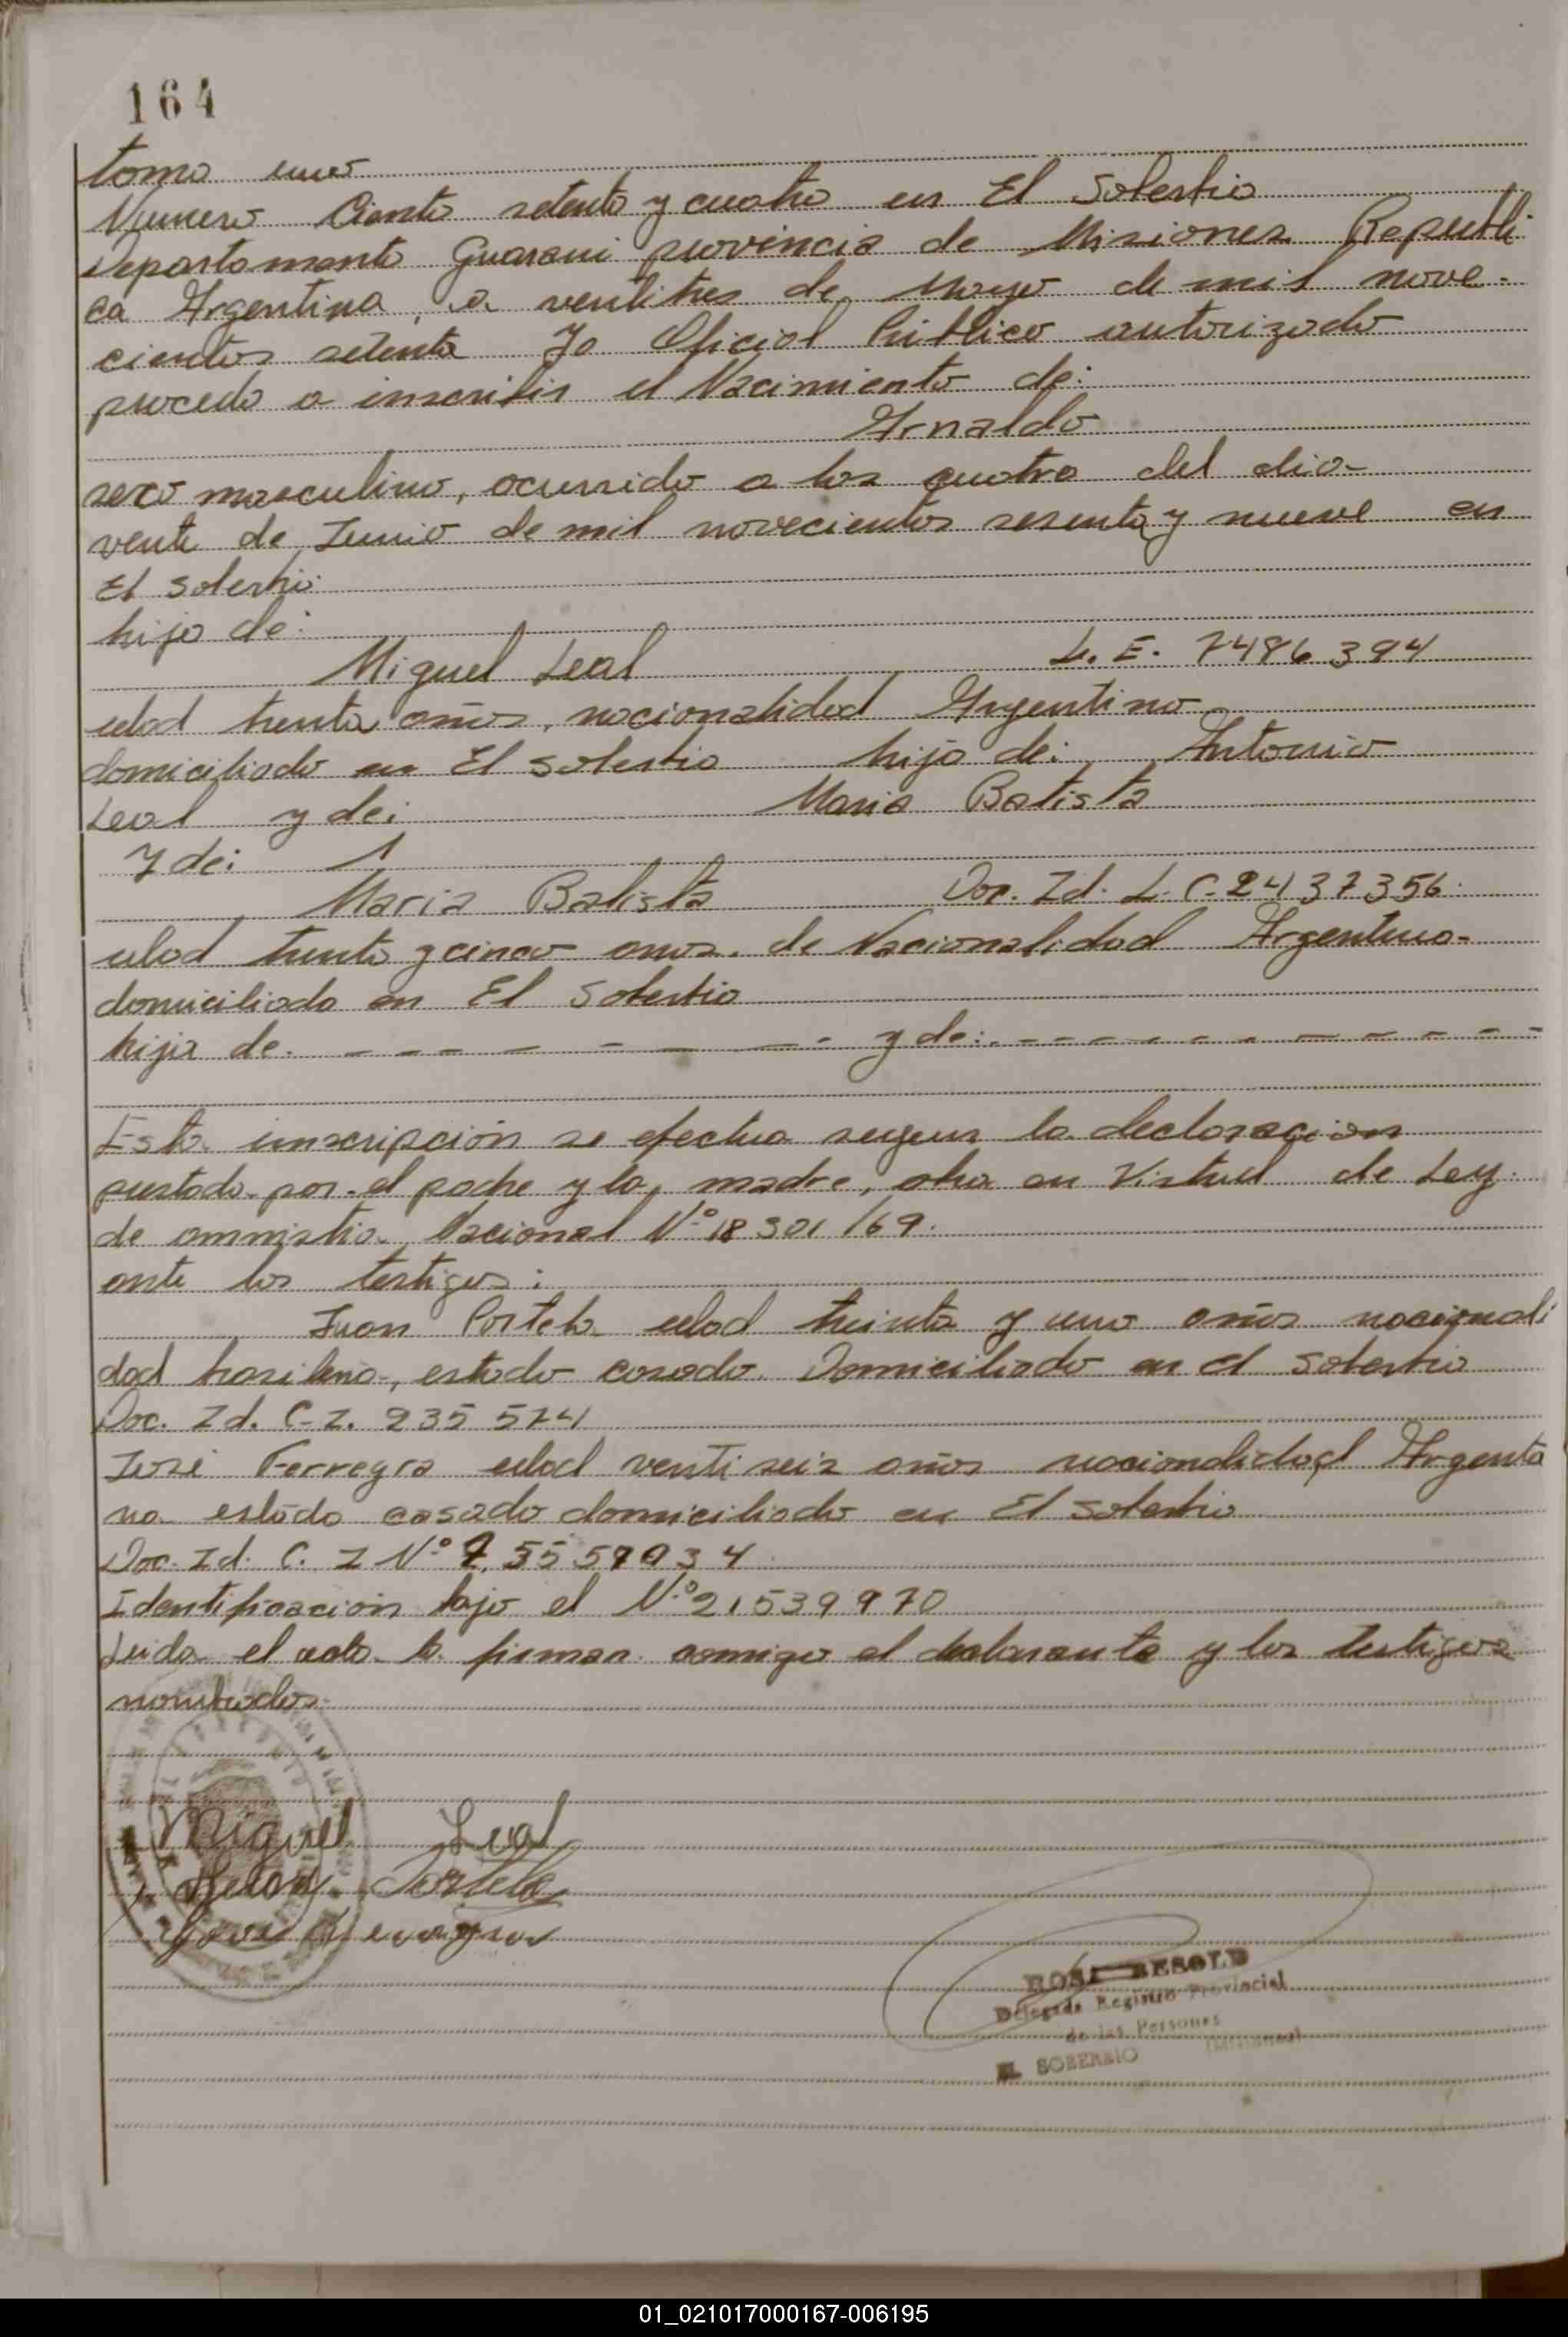 164
tomo uno
Numero Ciento setenta y cuatro en El Soberbio
Departamento Guarani provincia de Misiones Republi
ca Argentina, a ventitres de Mayo de mil nove-
cientos setenta Yo Oficial Publico autorizado
procedo a inscribir el Nacimiento de:
Arnaldo
sexo masculino, ocurrido a las cuatro del dia-
vente de Junio de mil novecientos sesenta y nueve en
El Soberbio:
hijo de:
Miguel Leal L. E. 7486394
edad trenta años, nacionalidad Argentino
domiciliado en El Soberbio hijo de: Antonio
Leal y de: Maria Batista
Y de:
Maria Batista Doc. Id. L. C. 2437356.
edad trenta y cinco anos. de Nacionalidad Argentina-
domiciliada en El Soberbio
hija de. - - - - - - - - y de: - - - - - - - - - -
Esta inscripción se efectua segun la declaracion
prestada por el padre y la madre, en Virtud de Ley
de amnistia Nacional Nº 18301/69.
ante los testigos:
Juan Portela edad treinta y uno años nacionali
dad brasileña, estado casado. Domiciliado en El Soberbio
Doc. Id. C. I. 235 574
José Ferreyra edad ventiseis años nacionalidad Argenta
na estado casado domiciliado en El Soberbio
Doc. Id. C. I Nº
Identificación bajo el Nº 21539970
Leida el acta la firman comigo el declarante y los testigos
nombrados.
Miguel Leal
Juan Portela
Jose Ferreyra
ROSA BESOLD
Delegada Registro Provincial
de las Personas
EL SOBERBIO (Misiones)
01_021017000167-006195